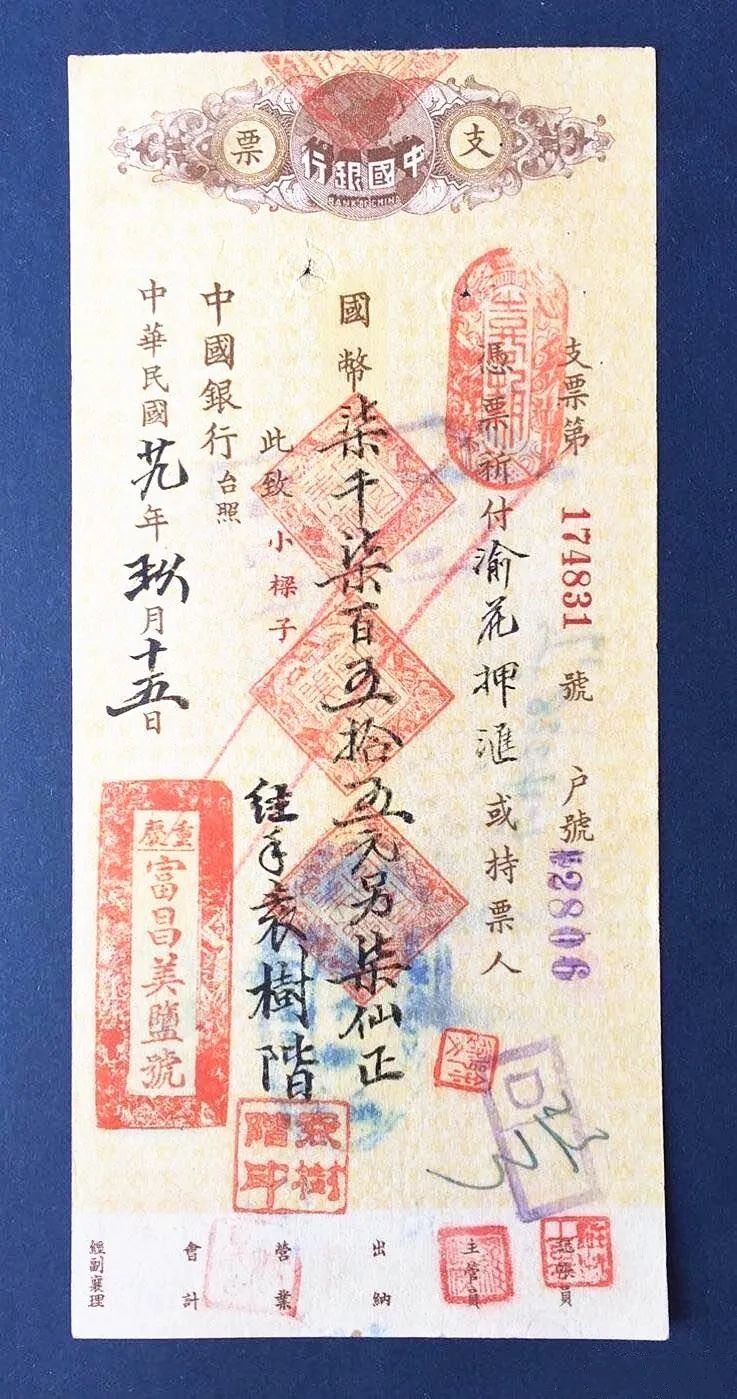 支票
中國銀行
BANK OF CHINA
支票第 174831 號 户號 W2806
憑票祈付渝花押滙或持票人
國幣柒千柒百五拾五元另柒仙正
此致 小樑子
經手袁樹階
中國銀行台照
中華民國廿九年玖月十五日
重慶
富昌美鹽號
袁樹階印
記帳員
主管員
出納
營業
會計
經副襄理